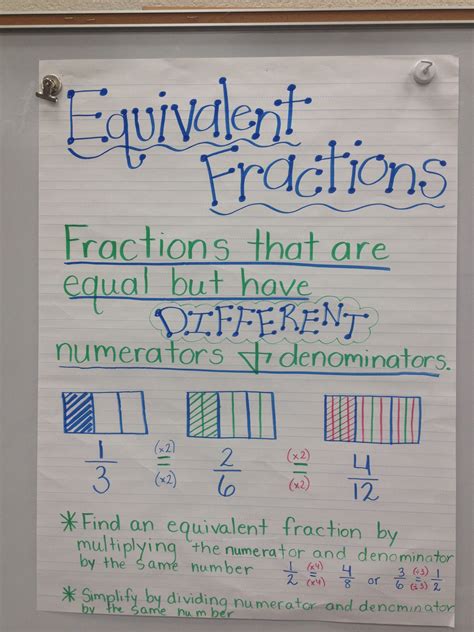 Equivalent
Fractions
Fractions that are
equal but have
DIFFERENT
numerators + denominators.
1/3 (x2) = (x2) 2/6 (x2) = (x2) 4/12
* Find an equivalent fraction by
multiplying the numerator and denominator
by the same number 1/2 (x4) = (x4) 4/8 or 3/6 (÷3) = (÷3) 1/2
* Simplify by dividing numerator and denominator
by the same number